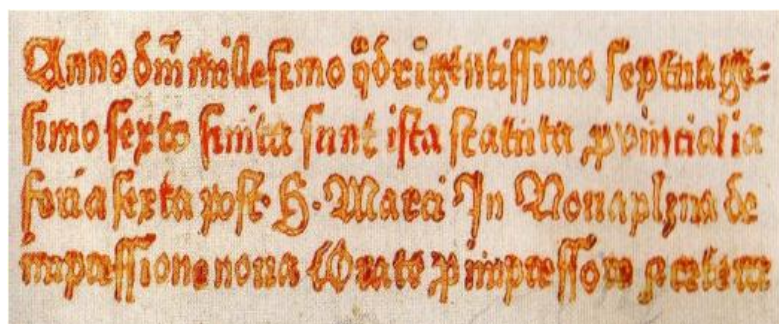 Anno dm̄ millesimo q̄drigentissimo septuagē=
simo sexto finita sunt ista statuta ꝓvincialia
feria sexta post· S· Marci In Novaplzna de
impressione nova Orate ꝓ impressore